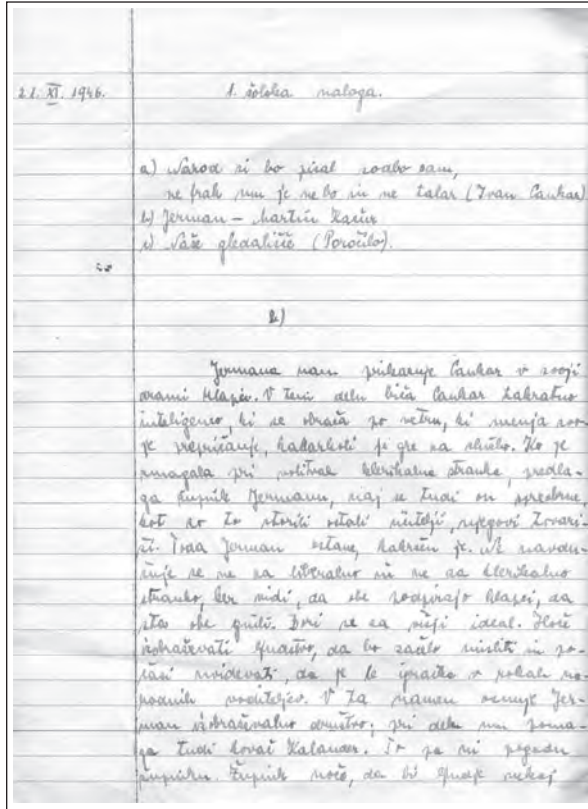 21. XI. 1946. 1. šolska naloga.
a) Narod si bo pisal sodbo sam,
ne frak mu je ne bo in ne talar (Ivan Cankar)
b) Jerman – Martin Kačur
c) Naše gledališče (Poročilo).
b)
Jermana nam prikazuje Cankar v svoji
drami Hlapci. V tem delu biča Cankar zakratno
inteligenco, ki se obrača po vetru, ki menja svo-
je prepričanje, kadarkoli ji gre za službo. Ko je
zmagala pri volitvah klerikalna stranka, predla-
ga župnik Jermanu, naj se tudi on spreobrne,
kot so to storili ostali učitelji, njegovi tovari-
ši. Toda Jerman ostane, kakršen je. Ne navdu-
šuje se ne za liberalno in ne za klerikalno
stranko, ker vidi, da obe podpirajo hlapci, da
sta obe gnili. Bori se za višji ideal. Hoče
izobraževati ljudstvo, da bo začelo misliti in po-
časi uvidevati, da je le igračka v rokah na-
rodnih voditeljev. V ta namen osnuje Jer-
man izobraževalno društvo; pri delu mu poma-
ga tudi kovač Kalander. To pa ni pogodu
župniku. Župnik noče, da bi ljudje nekaj